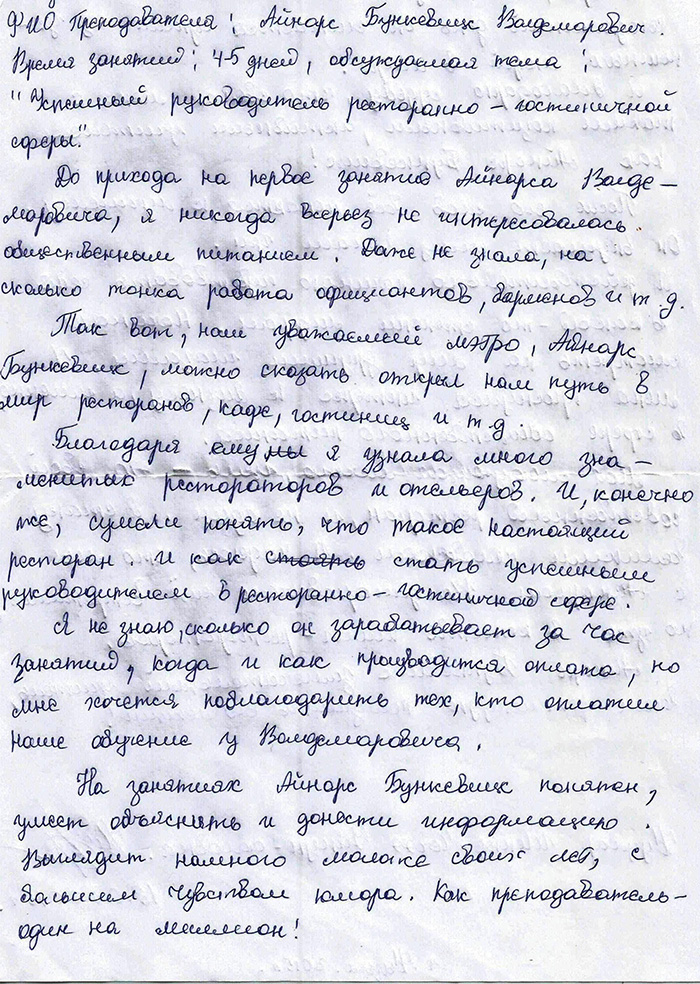 ФИО Преподавателя: Айнарс Бункевиц Волдемарович.
Время занятий: 4-5 дней, обсуждаемая тема:
"Успешный руководитель ресторанно-гостиничной
сферы."
До прихода на первое занятие Айнарса Волде-
маровича, я никогда всерьез не интересовалась
общественным питанием. Даже не знала, на
сколько тонка работа официантов, барменов и т.д.
Так вот, наш уважаемый мэтро, Айнарс
Бункевиц, можно сказать открыл нам путь в
мир ресторанов, кафе, гостиниц и т.д.
Благодаря ему я узнала много зна-
менитых рестораторов и отельеров. И, конечно
же, сумели понять, что такое настоящий
ресторан. И как стоять стать успешным
руководителем в ресторанно-гостиничной сфере.
Я не знаю, сколько он зарабатывает за час
занятий, когда и как производится оплата, но
мне хочется поблагодарить тех, кто оплатил
наше обучение у Волдемаровича.
На занятиях Айнарс Бункевиц понятен,
умеет объяснить и донести информацию.
Выглядит намного моложе своих лет, с
большим чувством юмора. Как преподаватель-
один на миллион!